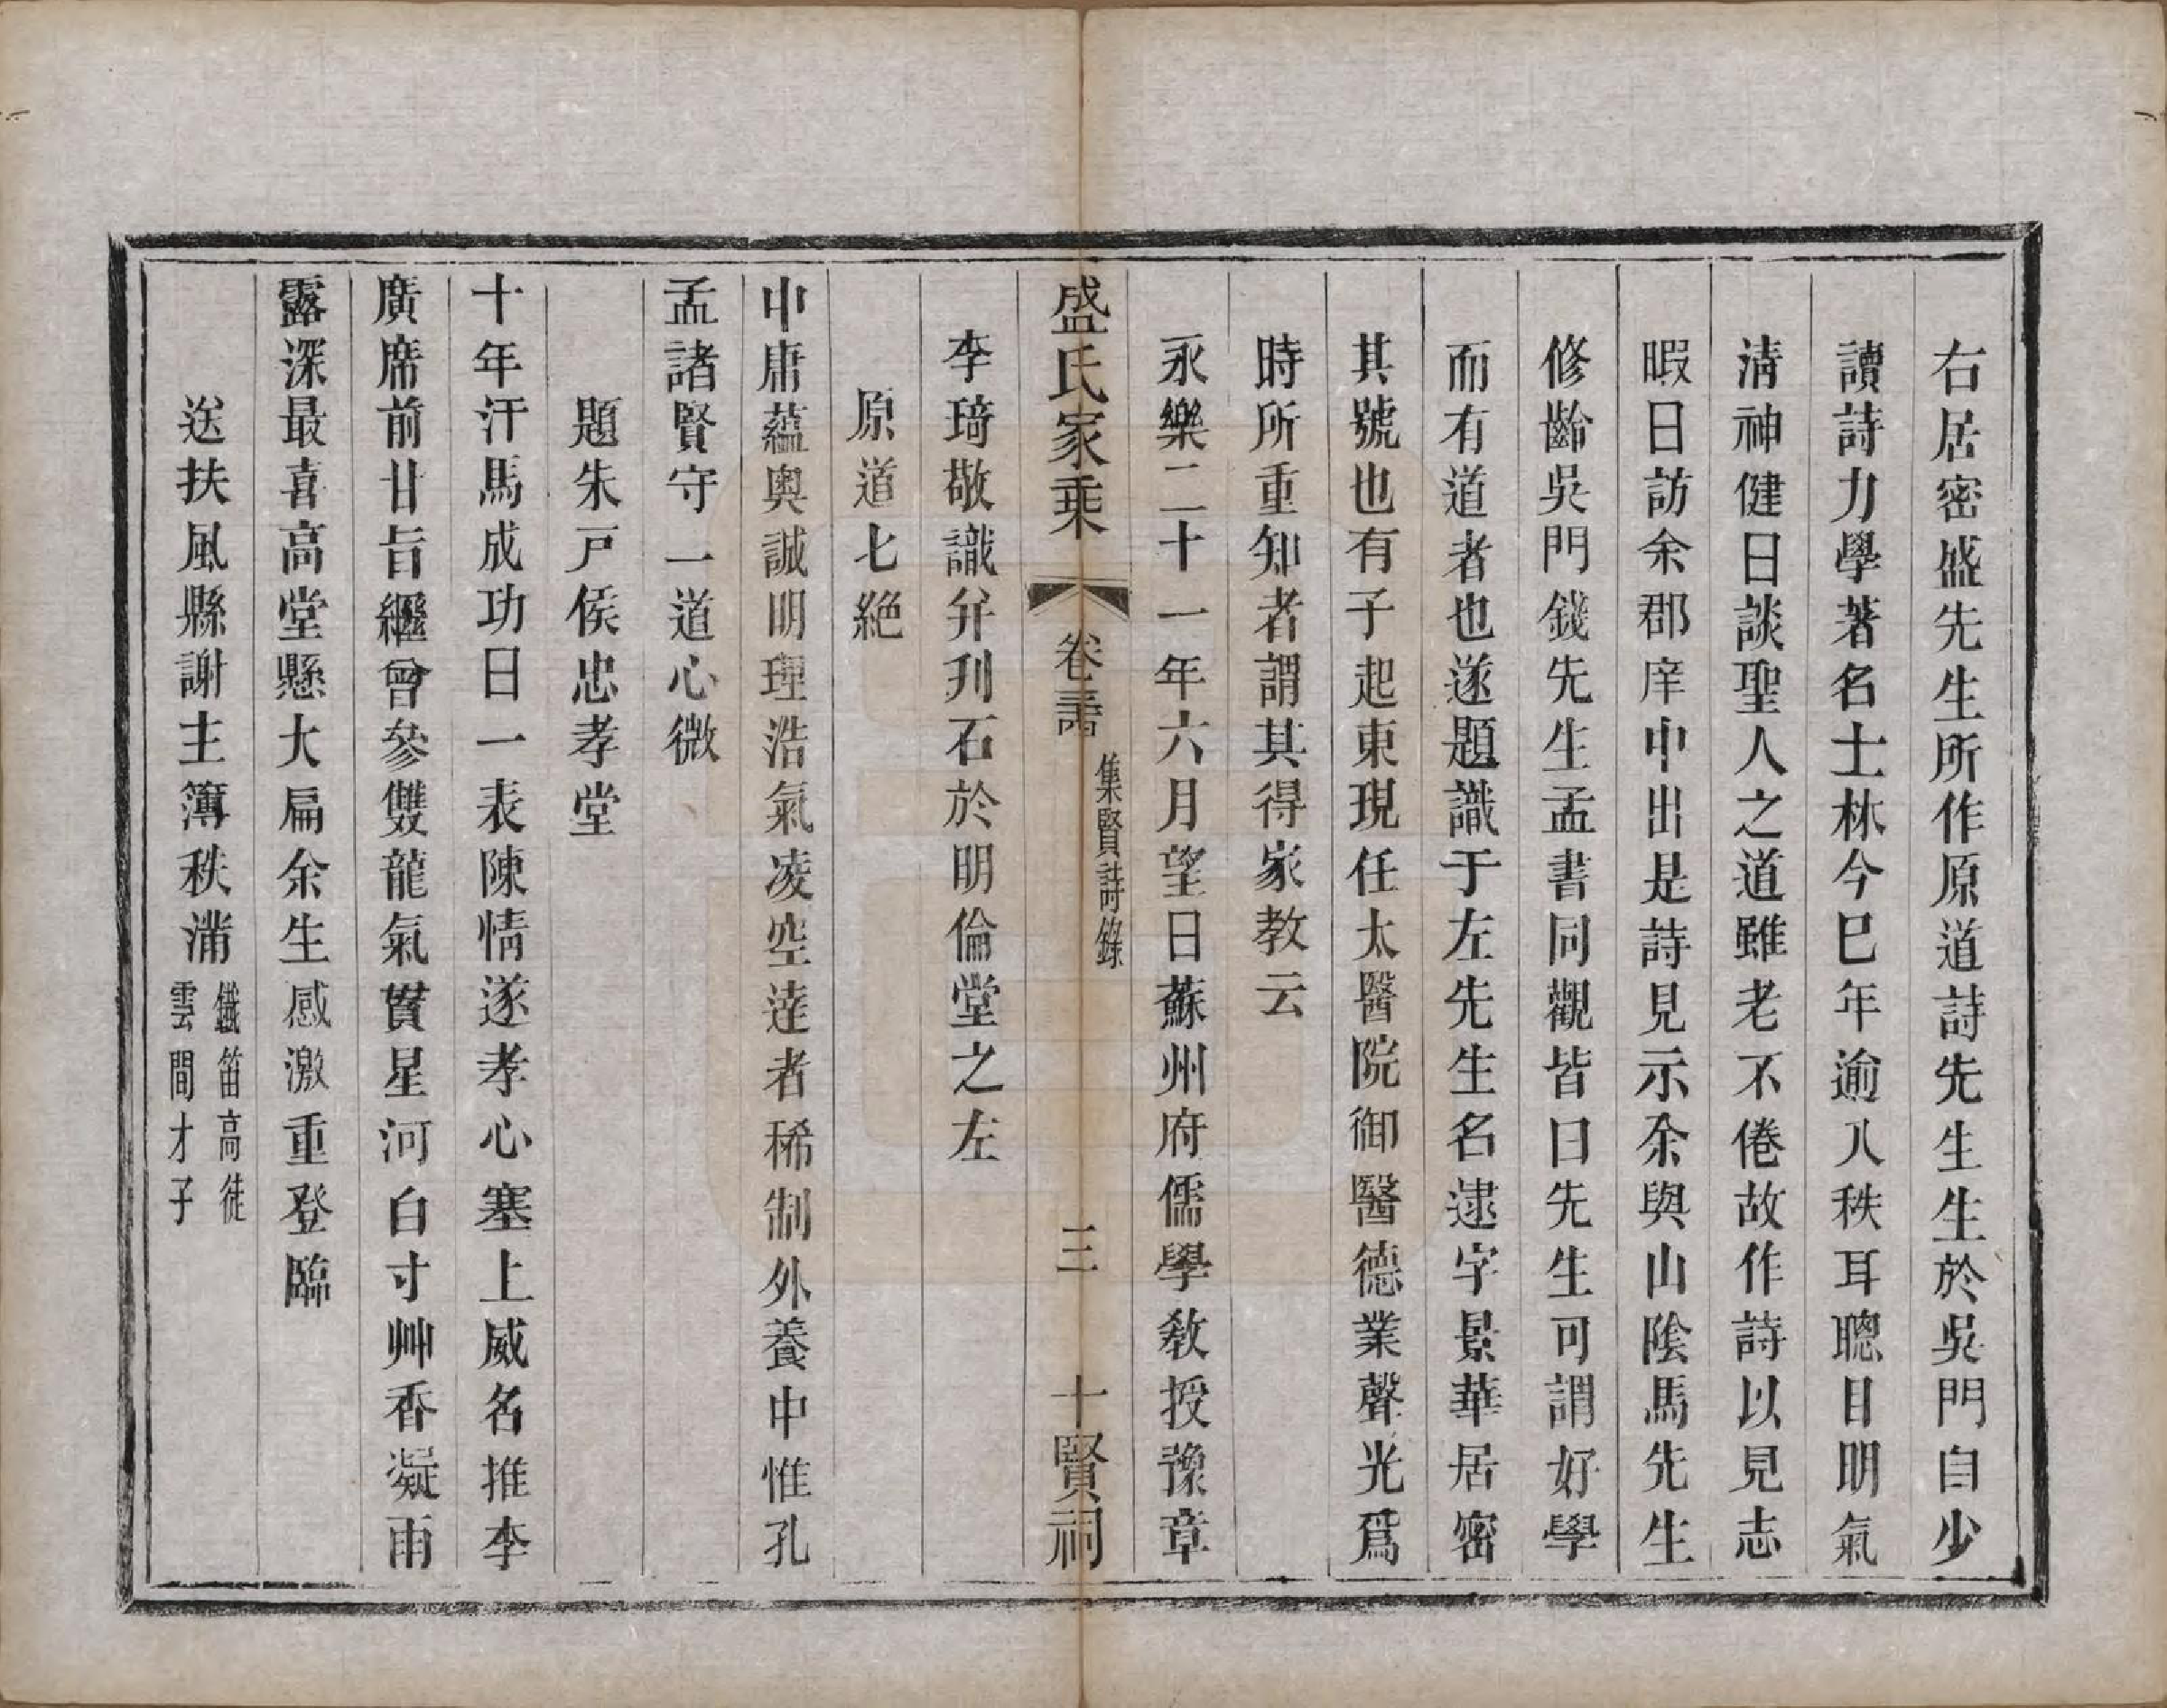 右居密盛先生所作原道詩先生生於吳門自少
讀詩力學著名士林今巳年逾八秩耳聰目明氣
淸神健日談聖人之道雖老不倦故作詩以見志
暇日訪余郡庠中出是詩見示余與山陰馬先生
修齡吳門錢先生孟書同觀皆曰先生可謂好學
而有道者也遂題識于左先生名逮字景華居密
其號也有子起東現任太醫院御醫德業聲光爲
時所重知者謂其得家教云
永樂二十一年六月望日蘇州府儒學敎授豫章
李琦敬識弁刋石於明倫堂之左
盛氏家乘 卷 集賢詩錄 三 十賢祠
原道七絶
中庸蘊奧誠明理浩氣凌空達者稀制外養中惟孔
孟諸賢守一道心微
題朱戸侯忠孝堂
十年汗馬成功日一表陳情遂孝心塞上威名推李
廣席前甘旨繼曾參雙龍氣貫星河白寸艸香凝雨
露深最喜高堂懸大扁余生感激重登臨
送扶風縣謝主簿秩滿 鐵笛高徒
雲間才子